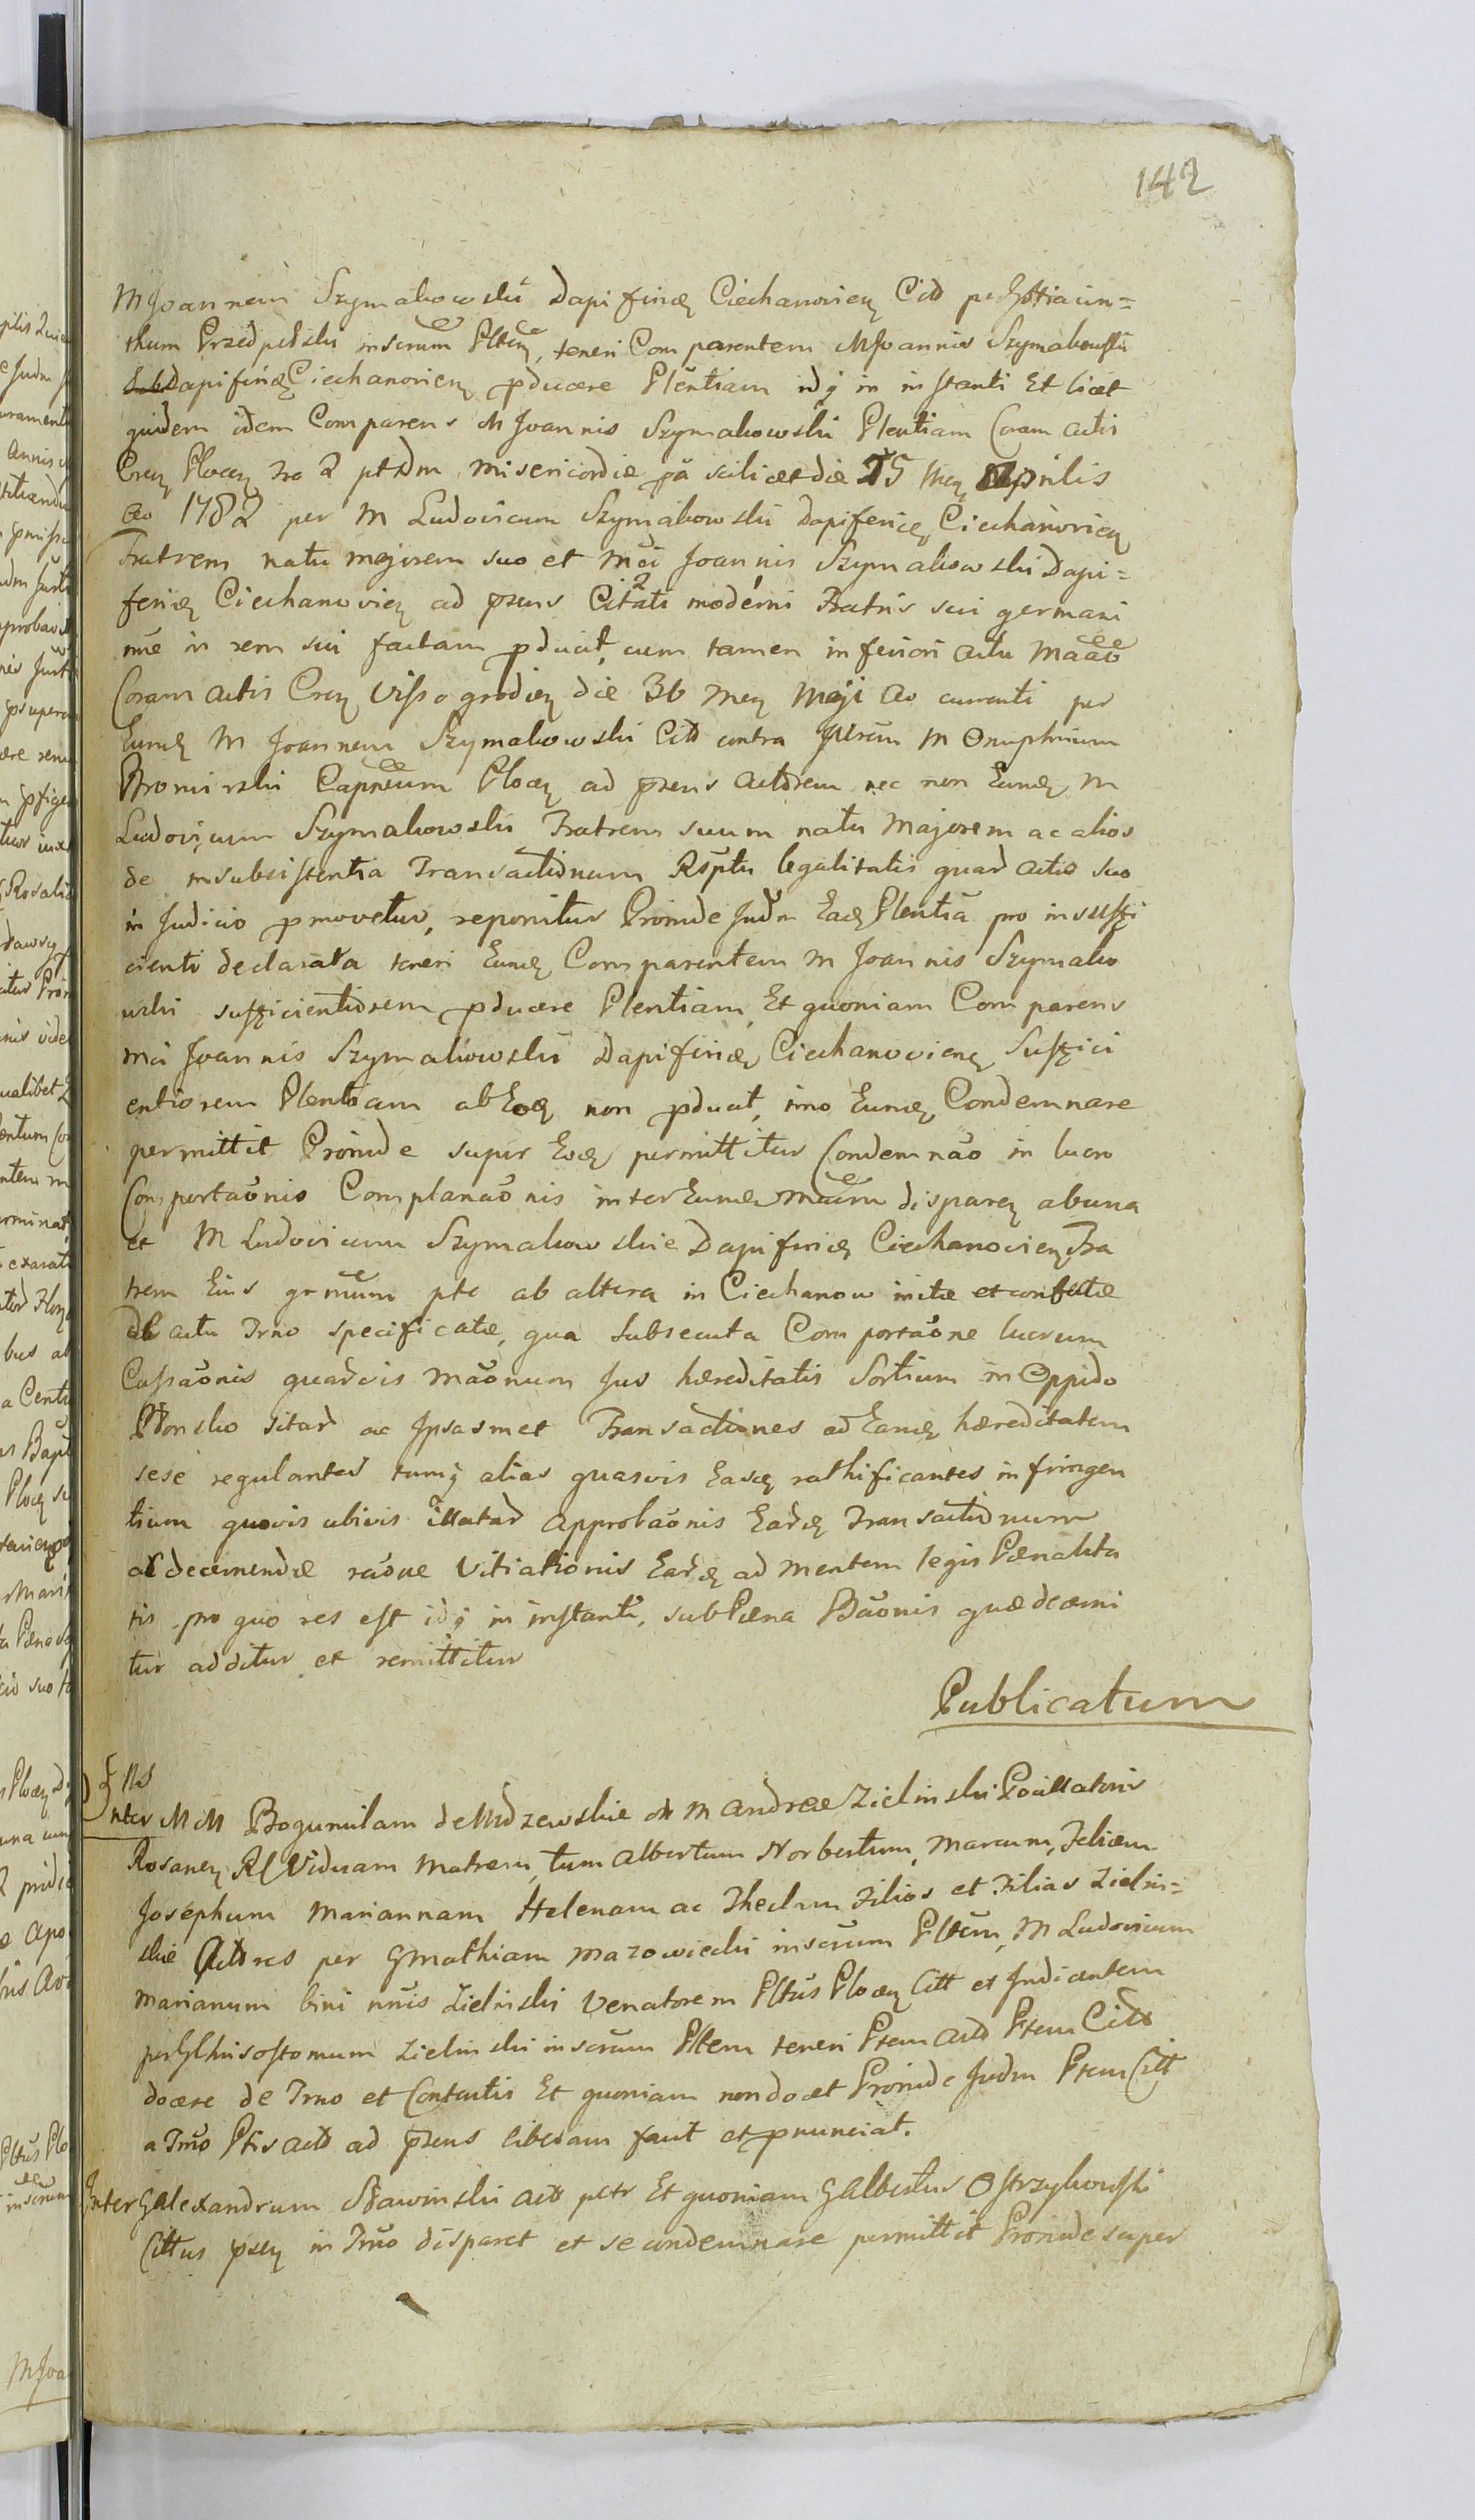 142
M Joannem Szymakowski Dapiferidę Ciechanovieꝫ Citt per G Hiacin=
thum Przedpełski inscrum Pltem, teneri Comparentem M Joannis Szymakowski
Dapiferidę Ciechanovieꝫ pducere Plentiam idq in instanti Et licet
quidem idem Comparens M Joannis Szymakowski Plentiam Coram actis
Creꝫ Ploceꝫ Fra 2 ptDm Misericordiæ pa scilicet die 15 Meꝫ Aprilis
Ao 1782 per M Ludovicum Szymakowski Dapiferidę Ciechanovieꝫ
Fratrem natu majorem suo et Mci Joannis Szymakowski Dapi=
feridę Ciechanovieꝫ ad præns Citati moderni Fratris sui germani
nne in rem sui factam pducit, cum tamen in feriori actu Maao
Coram actis Creꝫ Vissogrodieꝫ die 36 Meꝫ Maji Ao currenti per
Eundę M Joannem Szymakowski Citt contra M Onuphrium
Bromirski Capneum Ploceꝫ ad præns Actorem nec non Eundę M
Ludovicum Szymakowski Fratrem suum natu Majorem ac alios
de insubsistentia Transactionum Rsptu legalitatis quar actio suo
in Judicio pmovetur, reponitur Proinde Judm Eadę Plentia pro insuffi
cienti declarata teneri Eundę Comparentem M Joannis Szymako
wski sufficientiorem pducere Plentiam, Et quoniam Comparens
Mci Joannis Szymakowski Dapiferidę Ciechanovieꝫ Suffici
entiorem Plentiam ab Eodę non pducit, imo Eundę Condemnare
permittit Proinde super Eodę permittitur Condemnao in lucro
Comportaonis Complanaonis inter Eundę Mcum dispareꝫ ab una
et M Ludovicum Szymakowskie Dapiferidę Ciechanovieꝫ Fra
trem Eius grmum pte ab altera in Ciechanow initæ et confectæ
ab actu Trno specificatæ, qua subsecuta Comportaone lucrum
Cassaonis quarvis Maonum Jus hæreditatis Sortium in Oppido
Płonsko sitar ac Ipsasmet Transactiones ad Eandę hæreditatem
sese regulantes tumq alias quasvis Easdę rathificantes infringen
tium quovis ubivis illatar Approbaonis Eardę Transactionum
ac decernendæ raone Vitiationis Eardę ad mentem legis Pænalita
tis pro quo res est idq in instanti, sub Pæna Baonis quæ decerni
tur additur et remittitur
Publicatum
Inter MM Bogumilam de Mdzewskie M Andreæ Zielinski Pocillatoris
Rosaneꝫ Rl Viduam Matrem, tum Albertum Norbertum, Marcum, Felicem
Josephum Mariannam Helenam ac Theclam Filios et Filias Zielin=
skie Actores per G Mathiam Mazowiecki inscrum Pltem, M Ludovicum
Marianum bini nnis Zielinski Venatorem Pltus Ploceꝫ Citt et Judicantem
per G Chrisostomum Zielinski inscrum Pltem teneri Ptem Act Ptem Citt
docere de Trno et Contentis Et quoniam non docet Proinde Judm Ptem Citt
a Trno Ptis Act ad præns liberam facit et pnunciat.
Inter G Alexandrum Sławinski Act petr Et quoniam G Albertus Ostrzykowski
Cittus pseꝫ in Trno disparet et se condemnare permittit Proinde super